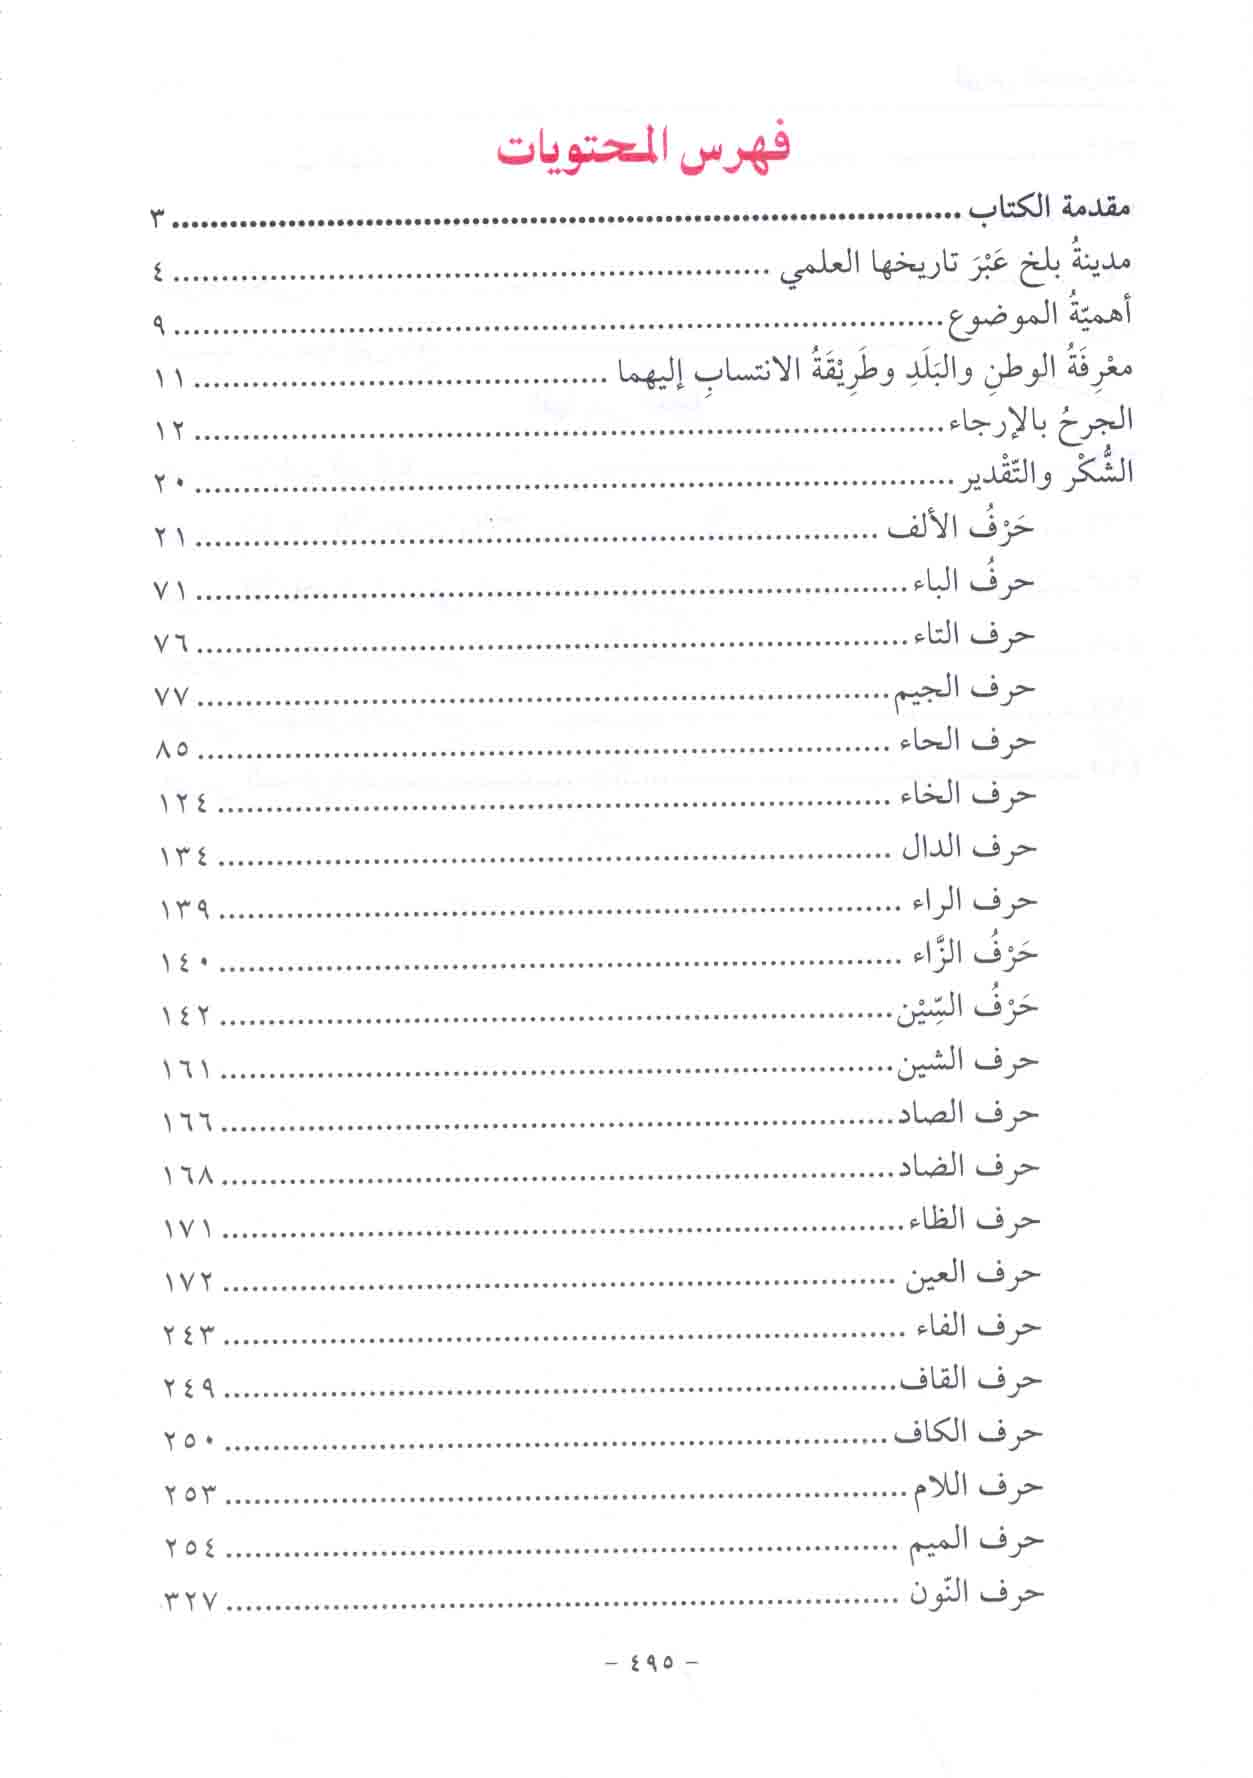 فهرس المحتويات
مقدمة الكتاب ........................................ ٣
مدينةُ بلخ عَبْرَ تاريخها العلمي ........................................ ٤
أهميّةُ الموضوع ........................................ ٩
معْرِفَةُ الوطنِ والبَلَدِ وطَرِيْقَةُ الانتسابِ إليهما ........................................ ١١
الجرحُ بالإرجاء ........................................ ١٢
الشُّكْر والتّقْدير ........................................ ٢٠
حَرْفُ الألف ........................................ ٢١
حرفُ الباء ........................................ ٧١
حرف التاء ........................................ ٧٦
حرف الجيم ........................................ ٧٧
حرف الحاء ........................................ ٨٥
حرف الخاء ........................................ ١٢٤
حرف الدال ........................................ ١٣٤
حرف الراء ........................................ ١٣٩
حَرْفُ الزَّاء ........................................ ١٤٠
حَرْفُ السِّيْن ........................................ ١٤٢
حرف الشين ........................................ ١٦١
حرف الصاد ........................................ ١٦٦
حرف الضاد ........................................ ١٦٨
حرف الظاء ........................................ ١٧١
حرف العين ........................................ ١٧٢
حرف الفاء ........................................ ٢٤٣
حرف القاف ........................................ ٢٤٩
حرف الكاف ........................................ ٢٥٠
حرف اللام ........................................ ٢٥٣
حرف الميم ........................................ ٢٥٤
حرف النّون ........................................ ٣٢٧
- ٤٩٥ -